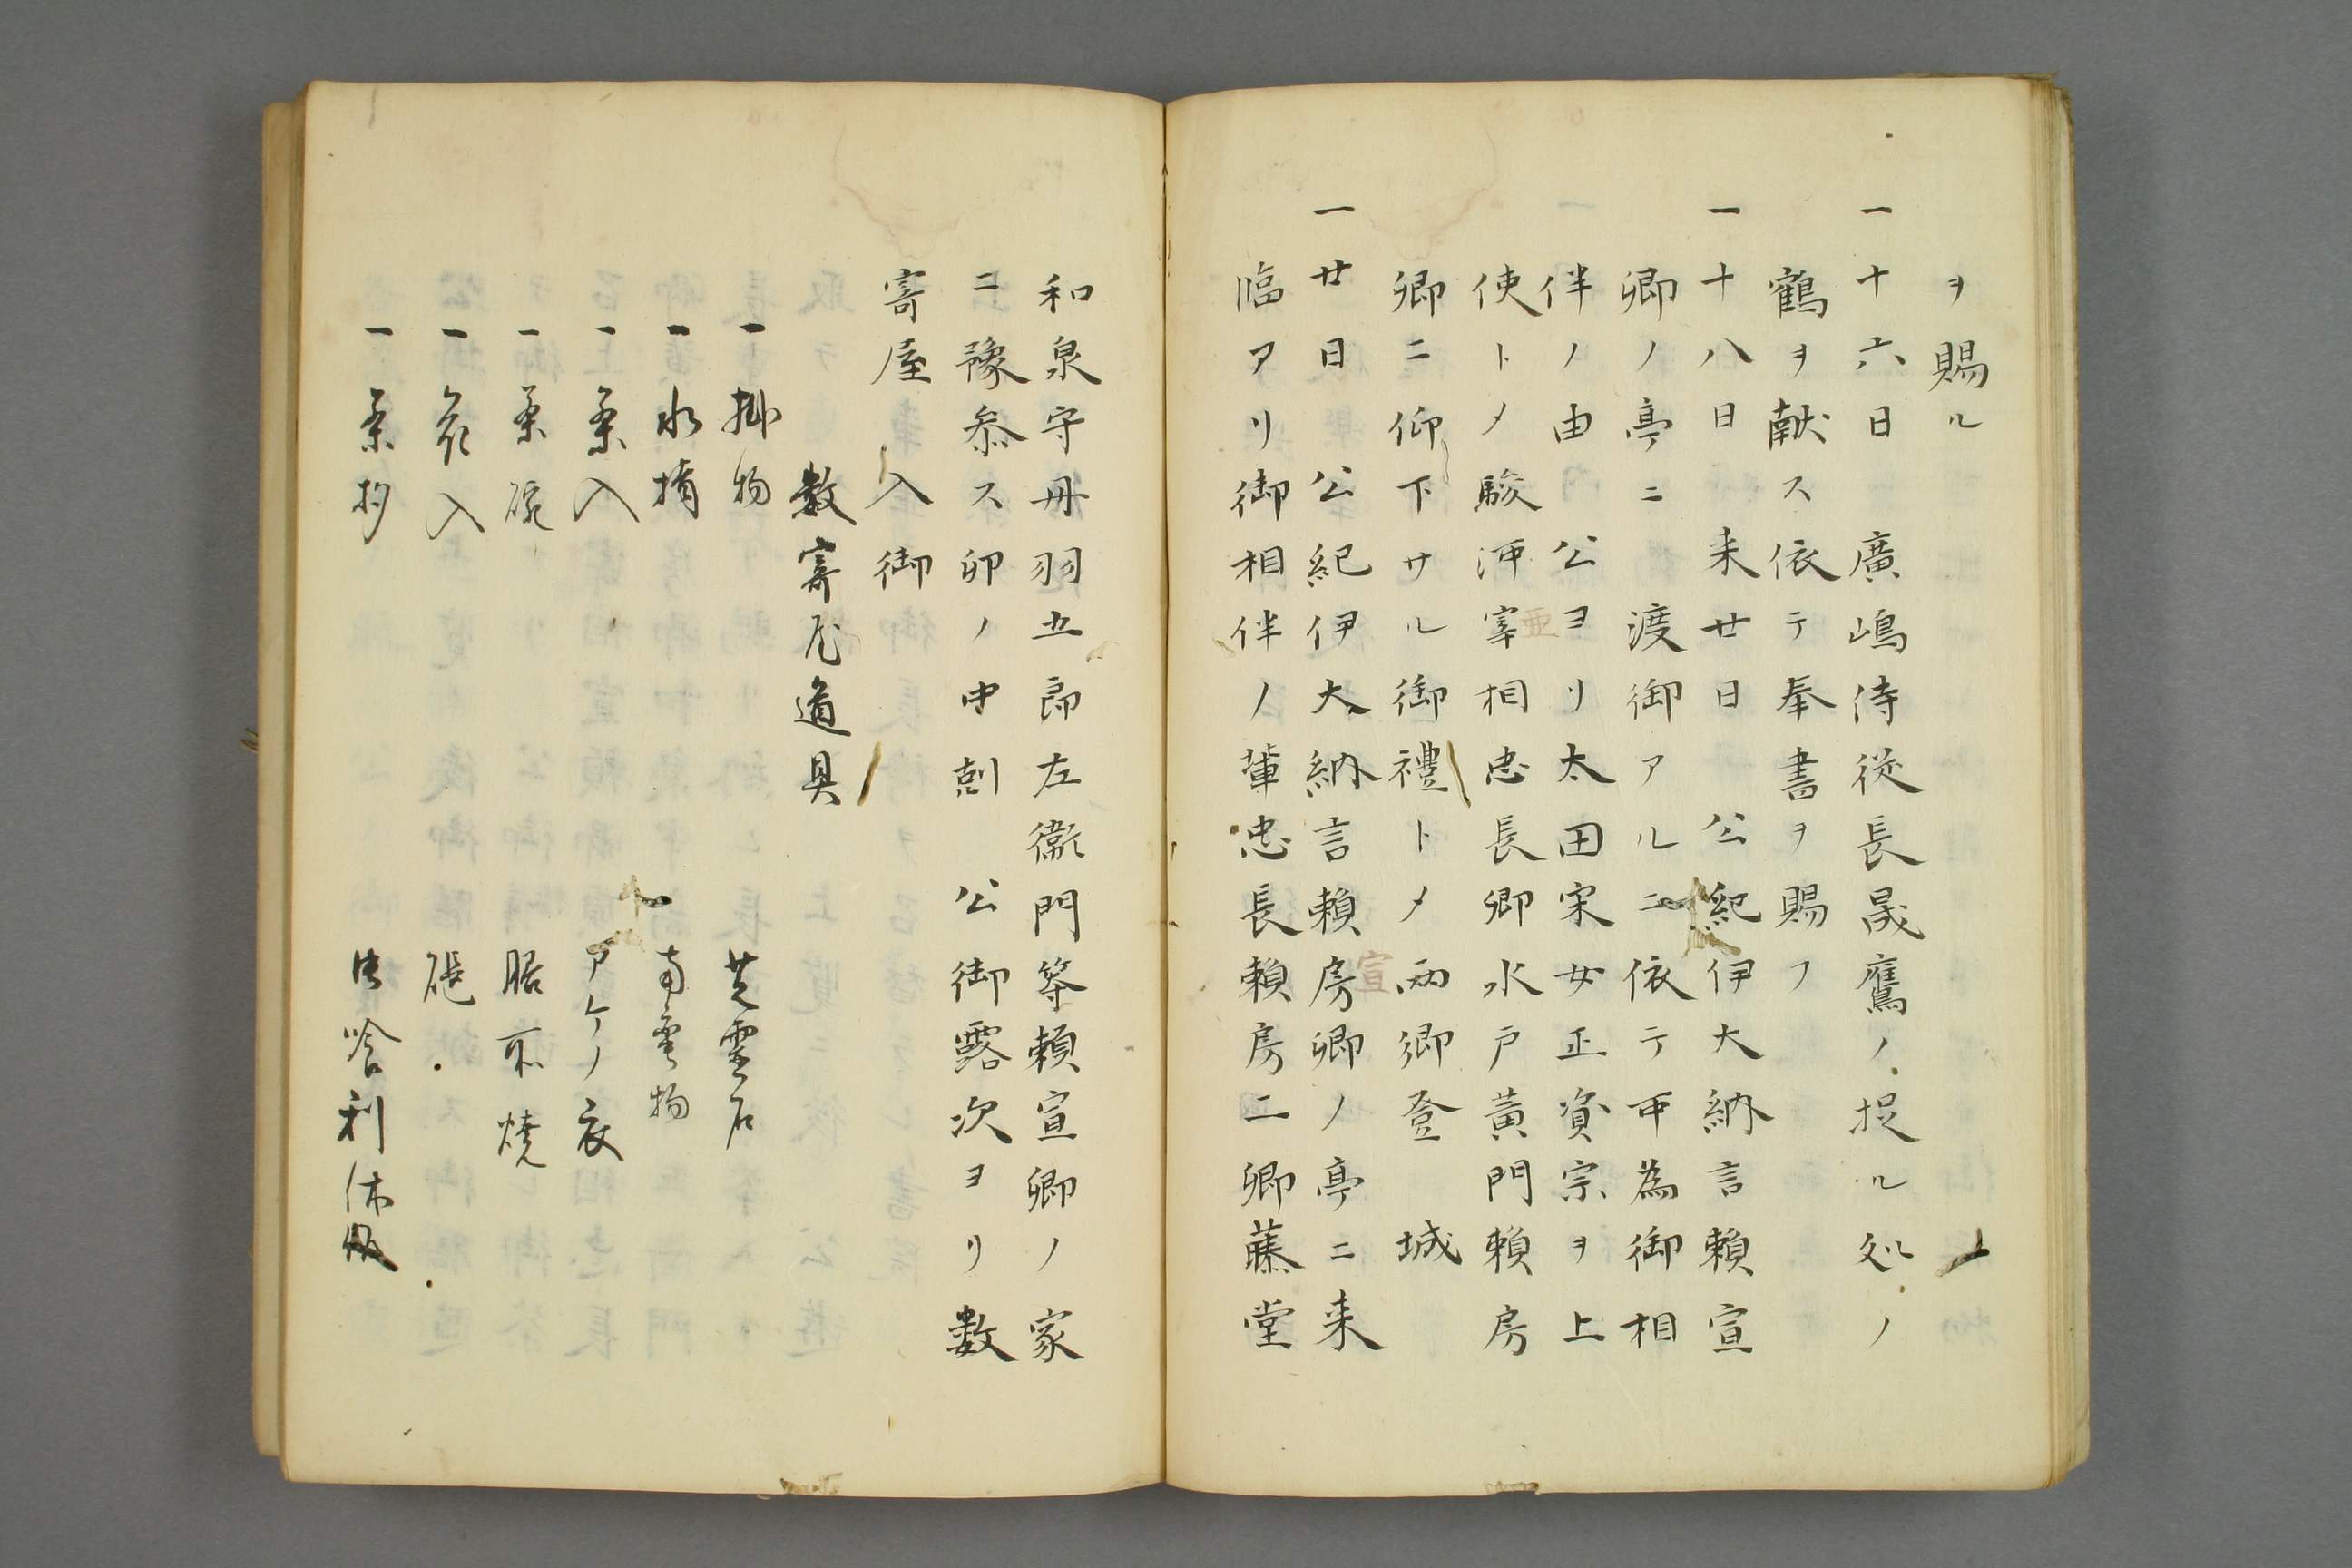 ヲ賜ル
一十六日　廣嶋侍従長晟鷹ノ捉ル処ノ
鶴ヲ献ス依テ奉書ヲ賜フ
一十八日　来廿日　公紀伊大納言頼宣
卿ノ亭ニ　渡御アルニ依テ申為御相
伴ノ由　公ヨリ太田采女正資宗ヲ上
使トメ駿河宰相忠長卿水戸黄門頼房
卿ニ仰下サル御禮トメ両卿登　城
一廿日　公紀伊大納言頼房卿ノ亭ニ来
宣
臨アリ御相伴ノ輩忠長頼房二卿藤堂
和泉守丹羽五郎左衛門等頼宣卿ノ家
ニ豫参ス卯ノ中刻　公御露次ヨリ数
寄屋　入御
数寄屋道具
一掛物　芝霊石
一水指　南蛮物
一茶入　アケノ衣
一茶碗　焼
一炭入
一茶杓　利休